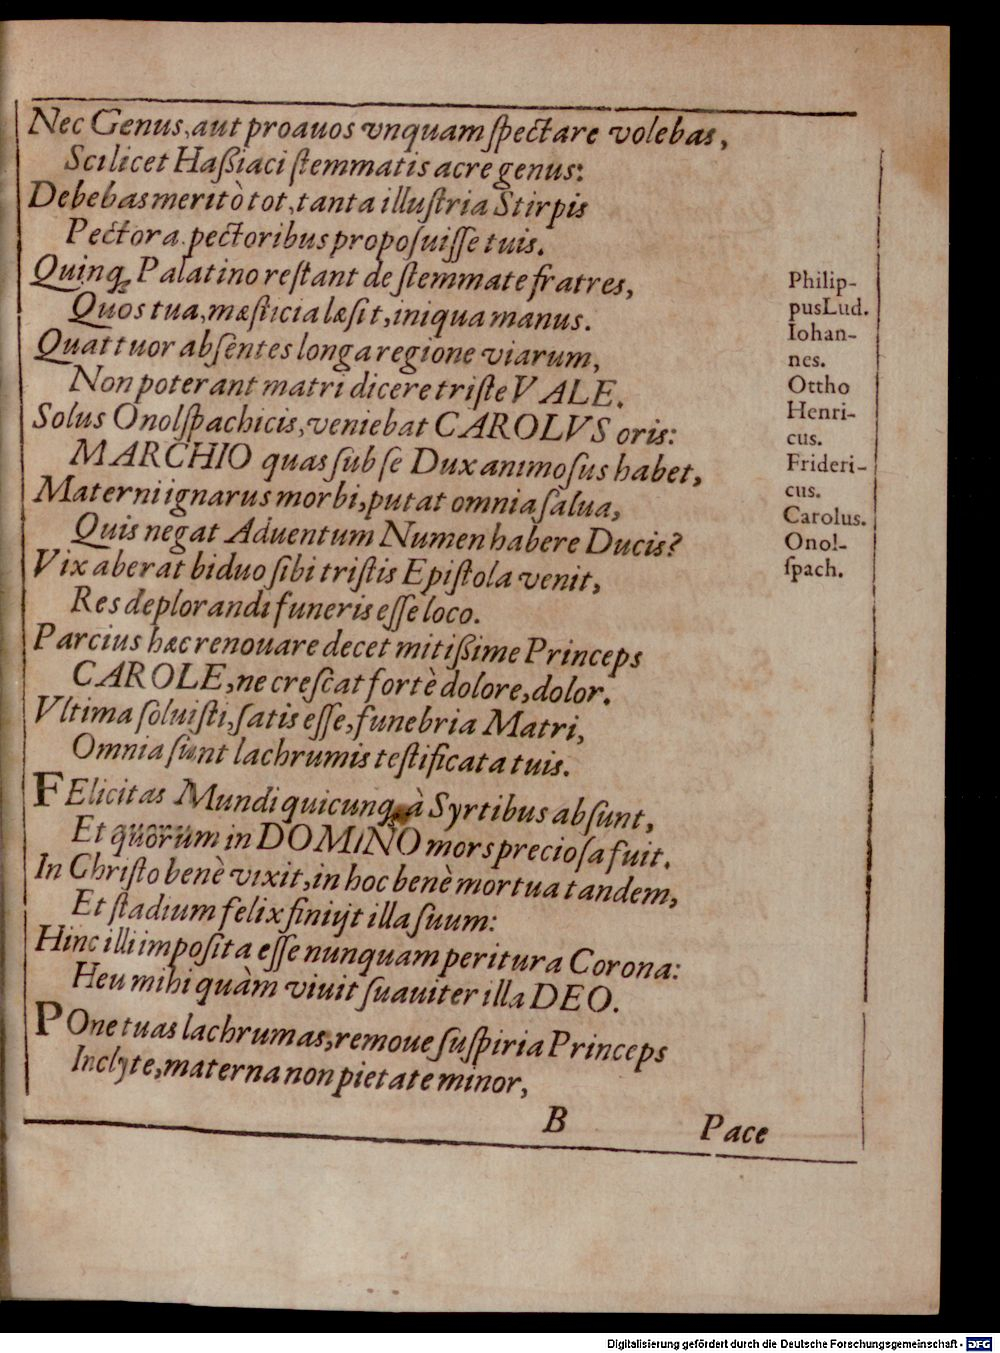 Nec Genus, aut proauos vnquam ſpectare volebas,
Scilicet Haßiaci ſtemmatis acre genus:
Debebas meritò tot, tanta illuſtria Stirpis
Pectora pectoribus propoſuiſſe tuis.
Quinq; Palatino reſtant de ſtemmate fratres,
Quos tua, mæſticia læſit, iniqua manus.
Quattuor abſentes longa regione viarum,
Non poterant matri dicere triſte VALE.
Solus Onolſpachicis, veniebat CAROLVS oris:
MARCHIO quas ſub ſe Dux animoſus habet,
Materni ignarus morbi, putat omnia ſalua,
Quis negat Aduentum Numen habere Ducis?
Vix aberat biduo ſibi triſtis Epiſtola venit,
Res deplorandi funeris eſſe loco.
Parcius hæc renouare decet mitißime Princeps
CAROLE, ne creſcat fortè dolore, dolor.
Vltima ſoluiſti, ſatis eſſe, funebria Matri,
Omnia ſunt lachrumis teſtificata tuis.
FElicitas Mundi quicunq; à Syrtibus abſunt,
Et quorum in DOMINO mors precioſa fuit.
In Chriſto benè vixit, in hoc benè mortua tandem,
Et ſtadium felix finijt illa ſuum:
Hinc illi impoſita eſſe nunquam peritura Corona:
Heu mihi quàm viuit ſuauiter illa DEO.
POne tuas lachrumas, remoue ſuſpiria Princeps
Inclyte, materna non pietate minor,
B Pace
Philip-
pus Lud.
Iohan-
nes.
Ottho
Henri-
cus.
Frideri-
cus.
Carolus.
Onol-
ſpach.
Digitalisierung gefördert durch die Deutsche Forschungsgemeinschaft - DFG